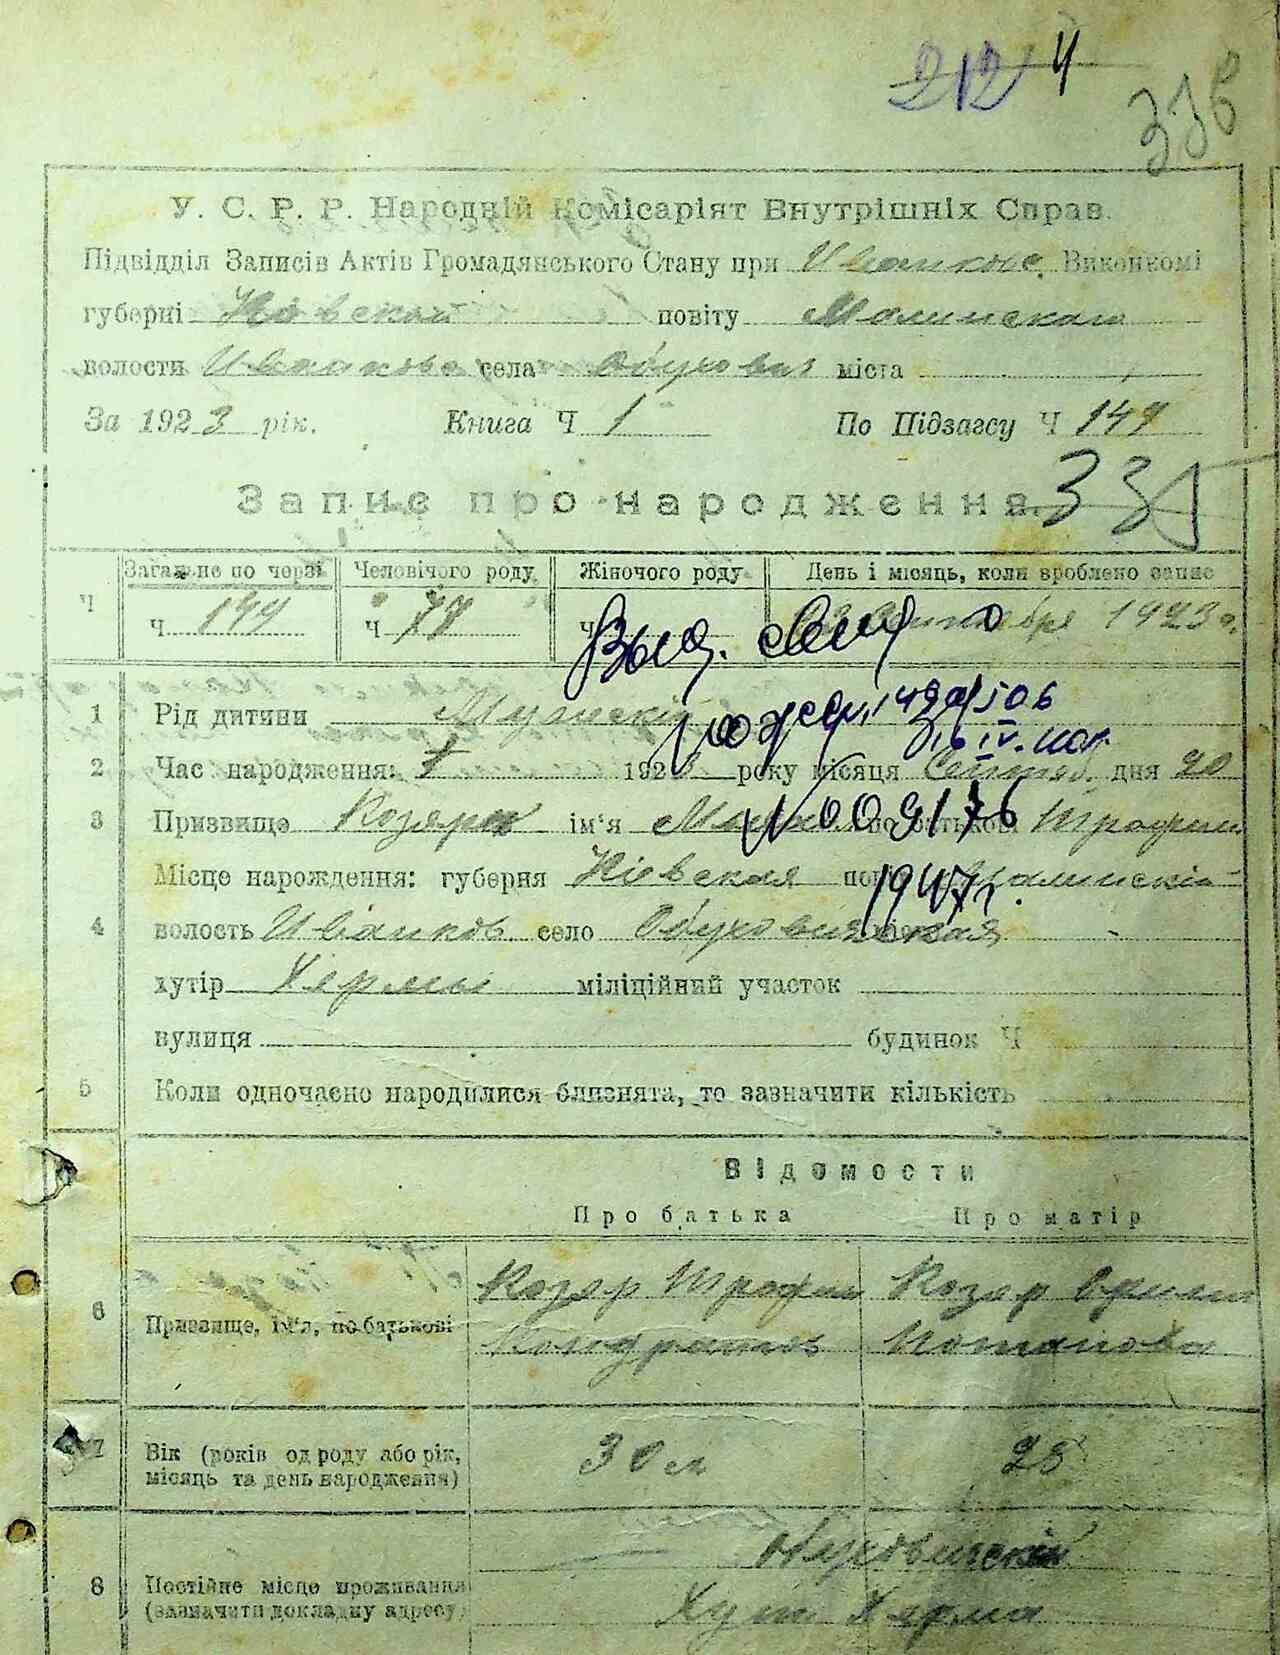 212 4
336
У. С. Р. Р. Народній Комісаріят Внутрішніх Справ.
Підвідділ Записів Актів Громадянського Стану при Иванков. Виконкомі
губерні Киевской повіту Малинскаго
волости Иванков села Обухович міста
За 1923 рік. Книга Ч 1 По Підзагсу Ч 144
Запис про народження. 335
Загальне по черзі Человічого роду Жіночого роду День і місяць, коли вроблено запис
Ч Ч 144 Ч 77 Ч 1923 г.
Выд. свид
1 Рід дитини Мужескій
16 IV.
2 Час народження: 1923 року місяця Сентяб. дня 20
3 Призвище Козяр ім'я по батькові Трофим
N 009176
Місце народження: губерня Кіевская Малинскій
1947 г.
4 волость Иванков. село
хутір Хермы міліційний участок
вулиця будинок Ч
5 Коли одночасно народилися близнята, то зазначити кількість
Відомости
Про батька Про матір
6 Призвище, ім'я, по батькові Козяр Трофим Козяр
Кондратов Потапова
7 Вік (років од роду або рік, 30 л 25
місяць та день народження)
8 Постійне місце проживання
(зазначити докладну адресу) Хут Херма